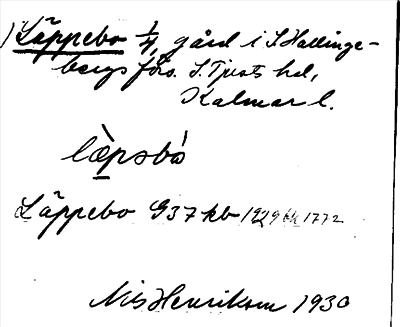 ) Läppebo 1/4, gård i S. Hallinge-
bergs förs. S. Tjusts hd,
Kalmar l.
læ̀psbò
Läppebo G37 kb 1929 kb 1772
Nils Henrikson 1930